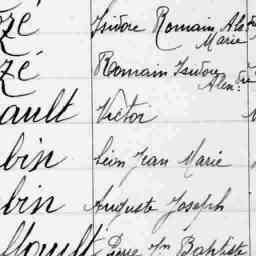 ozé Isidore Romain Ale
Marie
zé Romain Isidore
Alex:dre
ault Victor
bin Léon Jean Marie
bin Auguste Joseph
ault Pierre Jn Baptiste